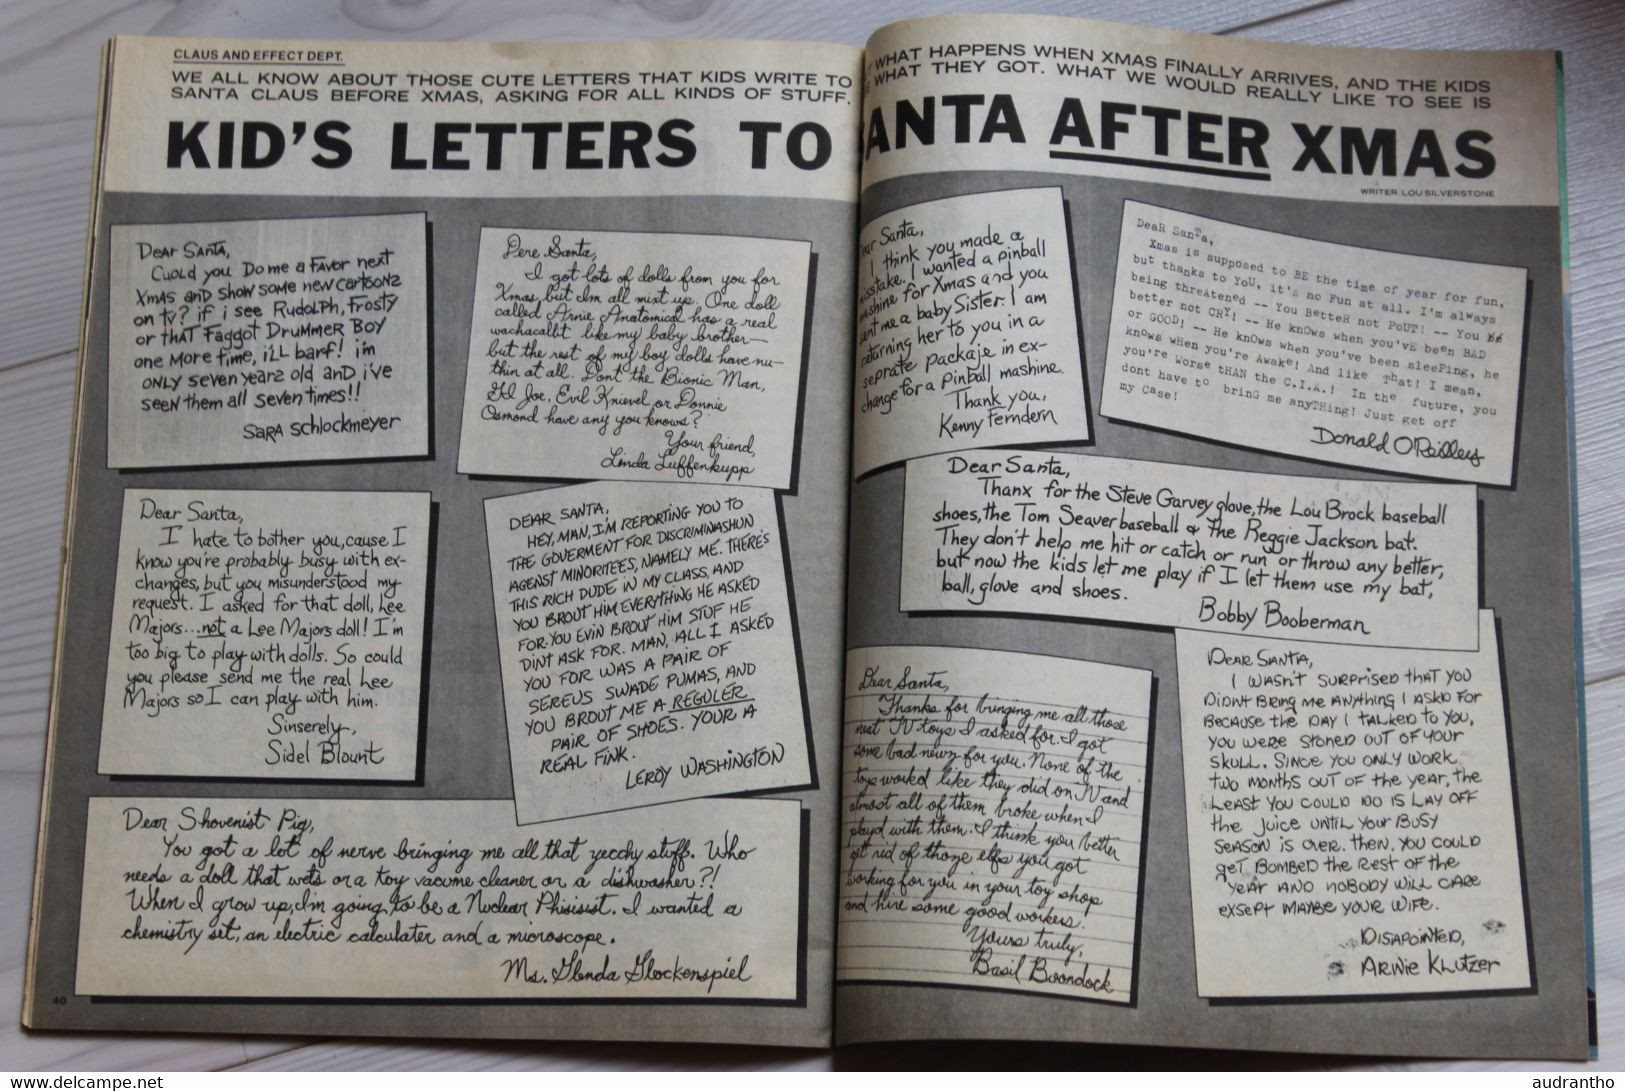 CLAUS AND EFFECT DEPT.
WE ALL KNOW ABOUT THOSE CUTE LETTERS THAT KIDS WRITE TO
SANTA CLAUS BEFORE XMAS, ASKING FOR ALL KINDS OF STUFF.
WHAT HAPPENS WHEN XMAS FINALLY ARRIVES, AND THE KIDS
WHAT THEY GOT. WHAT WE WOULD REALLY LIKE TO SEE IS
KID'S LETTERS TO SANTA AFTER XMAS
WRITER: LOU SILVERSTONE
Dear Santa,
Cuold you Do me a Favor next
Xmas and show some new cartoons
on tv? if i see Rudolph, Frosty
or that Faggot Drummer Boy
one more time, i'll barf! i'm
only seven years old and i've
seen them all seven times!!
Sara Schlockmeyer
Dere Santa,
I got lots of dolls from you for
Xmas, but I'm all mixt up. One doll
called Arnie Anatomical has a real
wachacallit like my baby brother—
but the rest of my boy dolls have nu-
thin at all. Dont the Bionic Man,
GI Joe, Evil Knievel or Donnie
Osmond have any you knows?
Your friend,
Linda Luffenkupp
Dear Santa,
I hate to bother you, cause I
know you're probably busy with ex-
changes, but you misunderstood my
request. I asked for that doll, Lee
Majors...not a Lee Majors doll! I'm
too big to play with dolls. So could
you please send me the real Lee
Majors so I can play with him.
Sincerely,
Sidel Blount
DEAR SANTA,
HEY, MAN, I'M REPORTING YOU TO
THE GOVERMENT FOR DISCRIMINASHUN
AGENST MINORITEES, NAMELY ME. THERE'S
THIS RICH DUDE IN MY CLASS, AND
YOU BROUT HIM EVERYTHING HE ASKED
FOR. YOU EVIN BROUT HIM STUF HE
DINT ASK FOR. MAN, ALL I ASKED
YOU FOR WAS A PAIR OF
SEREUS SWADE PUMAS, AND
YOU BROUT ME A REGULER
PAIR OF SHOES. YOUR A
REAL FINK.
LEROY WASHINGTON
Dear Shovenist Pig,
You got a lot of nerve bringing me all that yecchy stuff. Who
needs a doll that wets or a toy vacume cleaner or a dishwasher?!
When I grow up, I'm going to be a Nuclear Phisisist. I wanted a
chemistry set, an electric calculater and a microscope.
Ms. Glenda Glockenspiel
40
Dear Santa,
I think you made a
misstake. I wanted a pinball
mashine for Xmas and you
sent me a baby Sister. I am
returning her to you in a
seprate packaje in ex-
change for a pinball mashine.
Thank you,
Kenny Ferndern
DeaR SanTa,
Xmas is supposed to BE the time of year for fun,
but thanks to YoU, it's no Fun at all. I'm always
being threAtened -- You BetteR not PoUT! -- You
better not CRY! -- He knOws when you'vE beEn BAD
or GOOD! -- He knOws when you've been sleePing, he
knows wHen you're Awake! And like that! I mean,
you're worse tHAN the C.I.A.! In the future, you
dont have to brinG me anyTHing! Just get off
my Case!
Donald O'Reilley
Dear Santa,
Thanx for the Steve Garvey glove, the Lou Brock baseball
shoes, the Tom Seaver baseball & the Reggie Jackson bat.
They don't help me hit or catch or run or throw any better,
but now the kids let me play if I let them use my bat,
ball, glove and shoes.
Bobby Booberman
Dear Santa,
Thanks for bringing me all those
neat TV toys I asked for. I got
some bad newz for you. None of the
toys worked like they did on TV and
almost all of them broke when I
playd with them. I think you better
get rid of thoze elfs you got
working for you in your toy shop
and hire some good workers.
Yours truly,
Basil Boondock
Dear Santa,
I wasn't surprised that you
didnt bring me anything I asked for
because the day I talked to you,
you were stoned out of your
skull. Since you only work
two months out of the year, the
least you could do is lay off
the juice until your busy
season is over. Then, you could
get bombed the rest of the
year and nobody will care
exsept maybe your wife.
Disapointed,
Arnie Klutzer
www.delcampe.net
audrantho